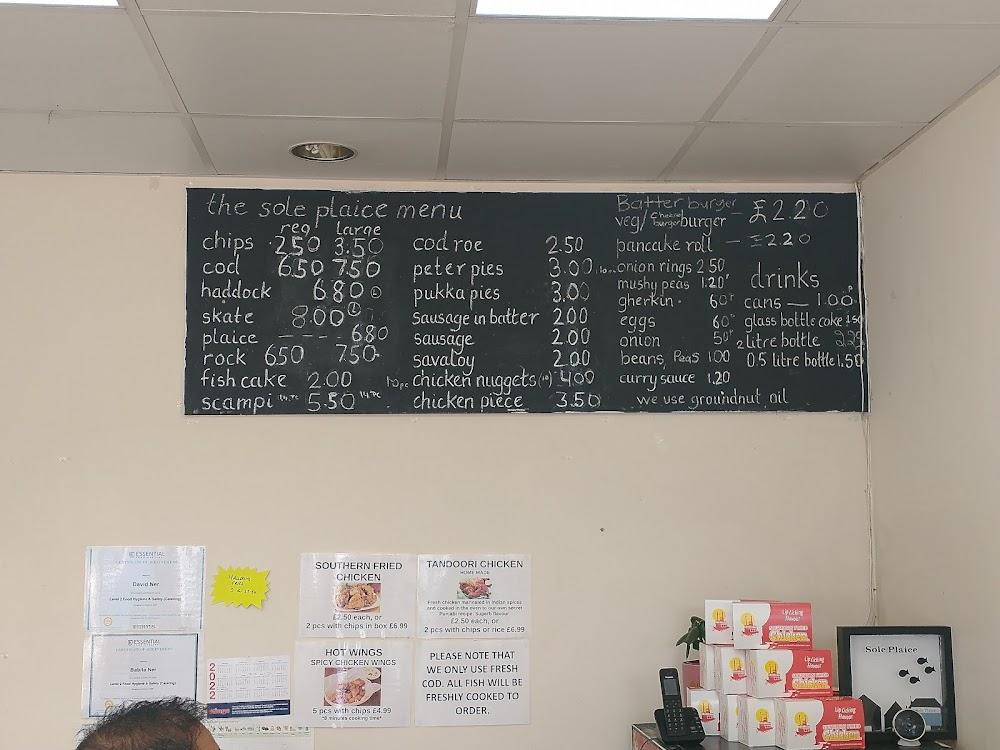 the sole plaice menu
reg large
chips 2.50 3.50
cod 650 750
haddock 680 L
skate 8.00 L
plaice — — — 680
rock 650 750
fish cake 2.00
scampi 14 pc 5.50 14 pc
cod roe 2.50
peter pies 3.00
pukka pies 3.00
sausage in batter 200
sausage 2.00
savaloy 2.00
10 pc chicken nuggets (10) 400
chicken piece 3.50
Batter burger
veg/ cheese burger burger — £2.20
pancake roll — £2.20
onion rings 2 50
mushy peas 1.20
gherkin 60
eggs 60
onion 50
beans, Peas 1.00
curry sauce 1.20
drinks
cans — 1.00
glass bottle coke 1.50
2 litre bottle 2.25
0.5 litre bottle 1.50
we use groundnut oil
ESSENTIAL
David Ner
Level 2 Food Hygiene & Safety (Catering)
ESSENTIAL
Babita Ner
Level 2 Food Hygiene & Safety (Catering)
2022
SOUTHERN FRIED
CHICKEN
£2.50 each, or
2 pcs with chips in box £6.99
TANDOORI CHICKEN
HOME MADE
Fresh chicken marinated in Indian spices
and cooked in the oven to our own secret
Punjabi recipe. Superb flavour
£2.50 each, or
2 pcs with chips or rice £6.99
HOT WINGS
SPICY CHICKEN WINGS
5 pcs with chips £4.99
*8 minutes cooking time*
PLEASE NOTE THAT
WE ONLY USE FRESH
COD. ALL FISH WILL BE
FRESHLY COOKED TO
ORDER.
Lip Licking
Flavour
SOUTHERN FRIED
Chicken
Lip Licking
Flavour
Chicken
Lip Licking
Flavour
Chicken
Sole Plaice